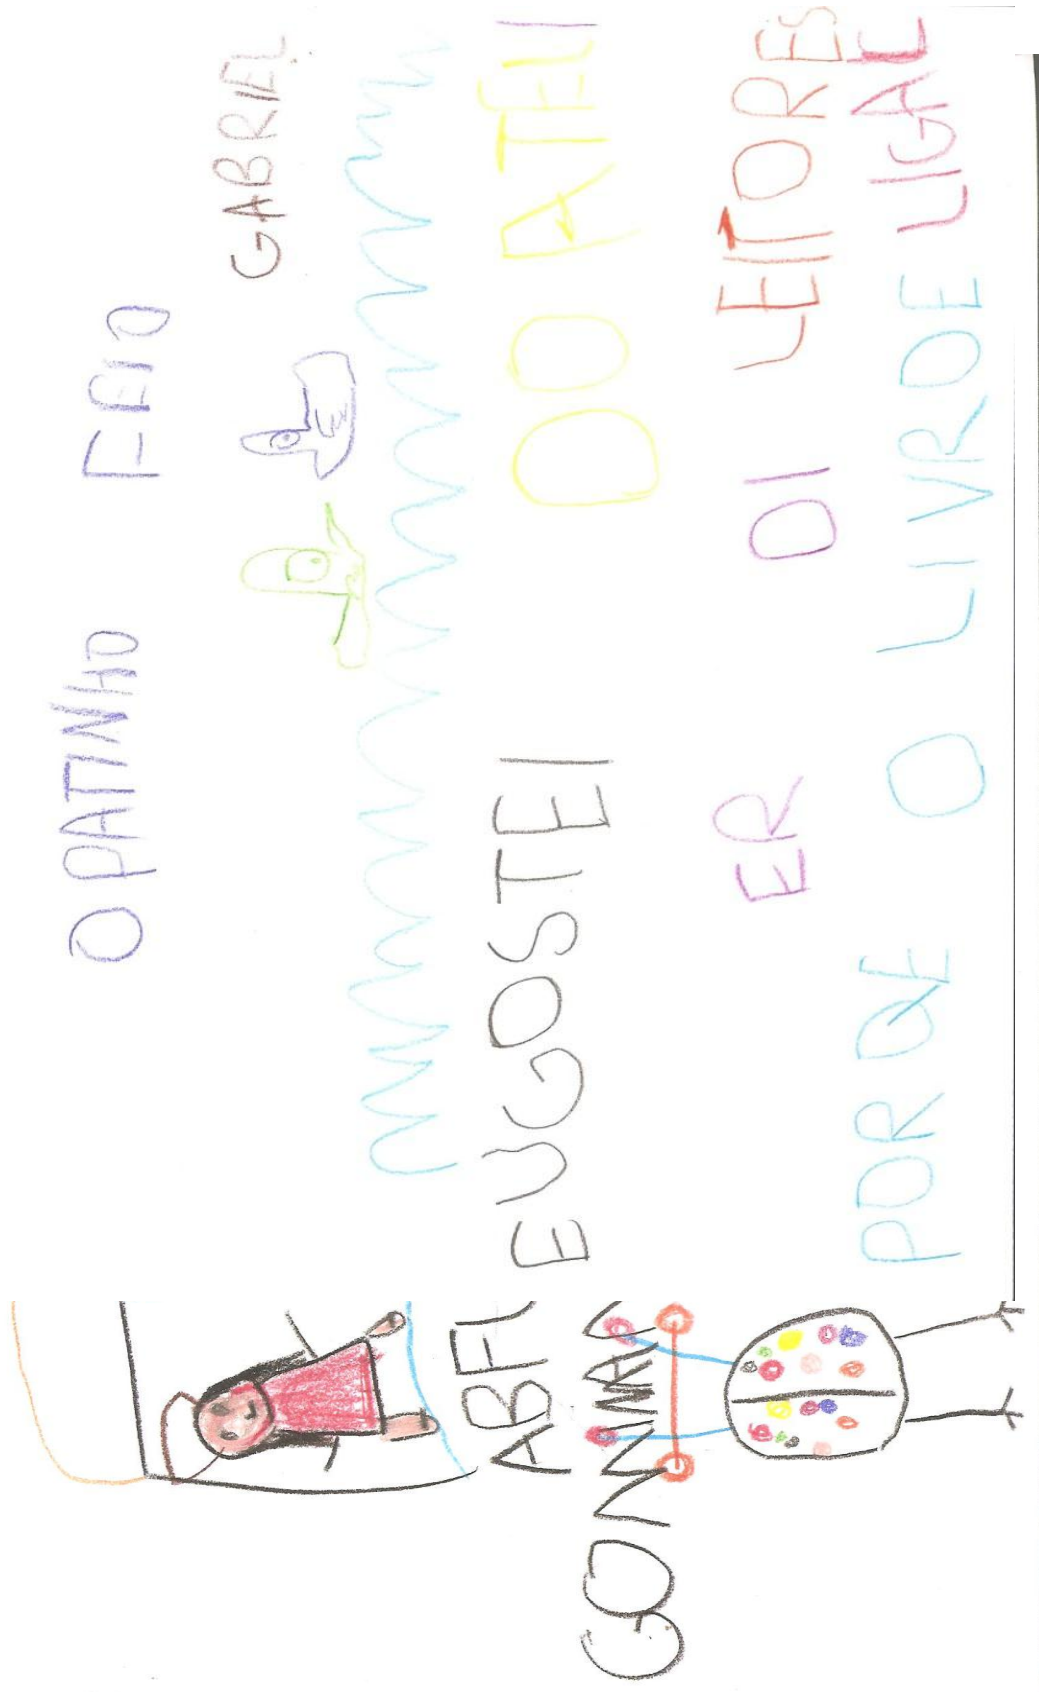 O PATINHO FEIO
GABRIEL
EU GOSTEI DO ATELI
ER DI LEITORES
POR QE O LIVRO E LIGAL